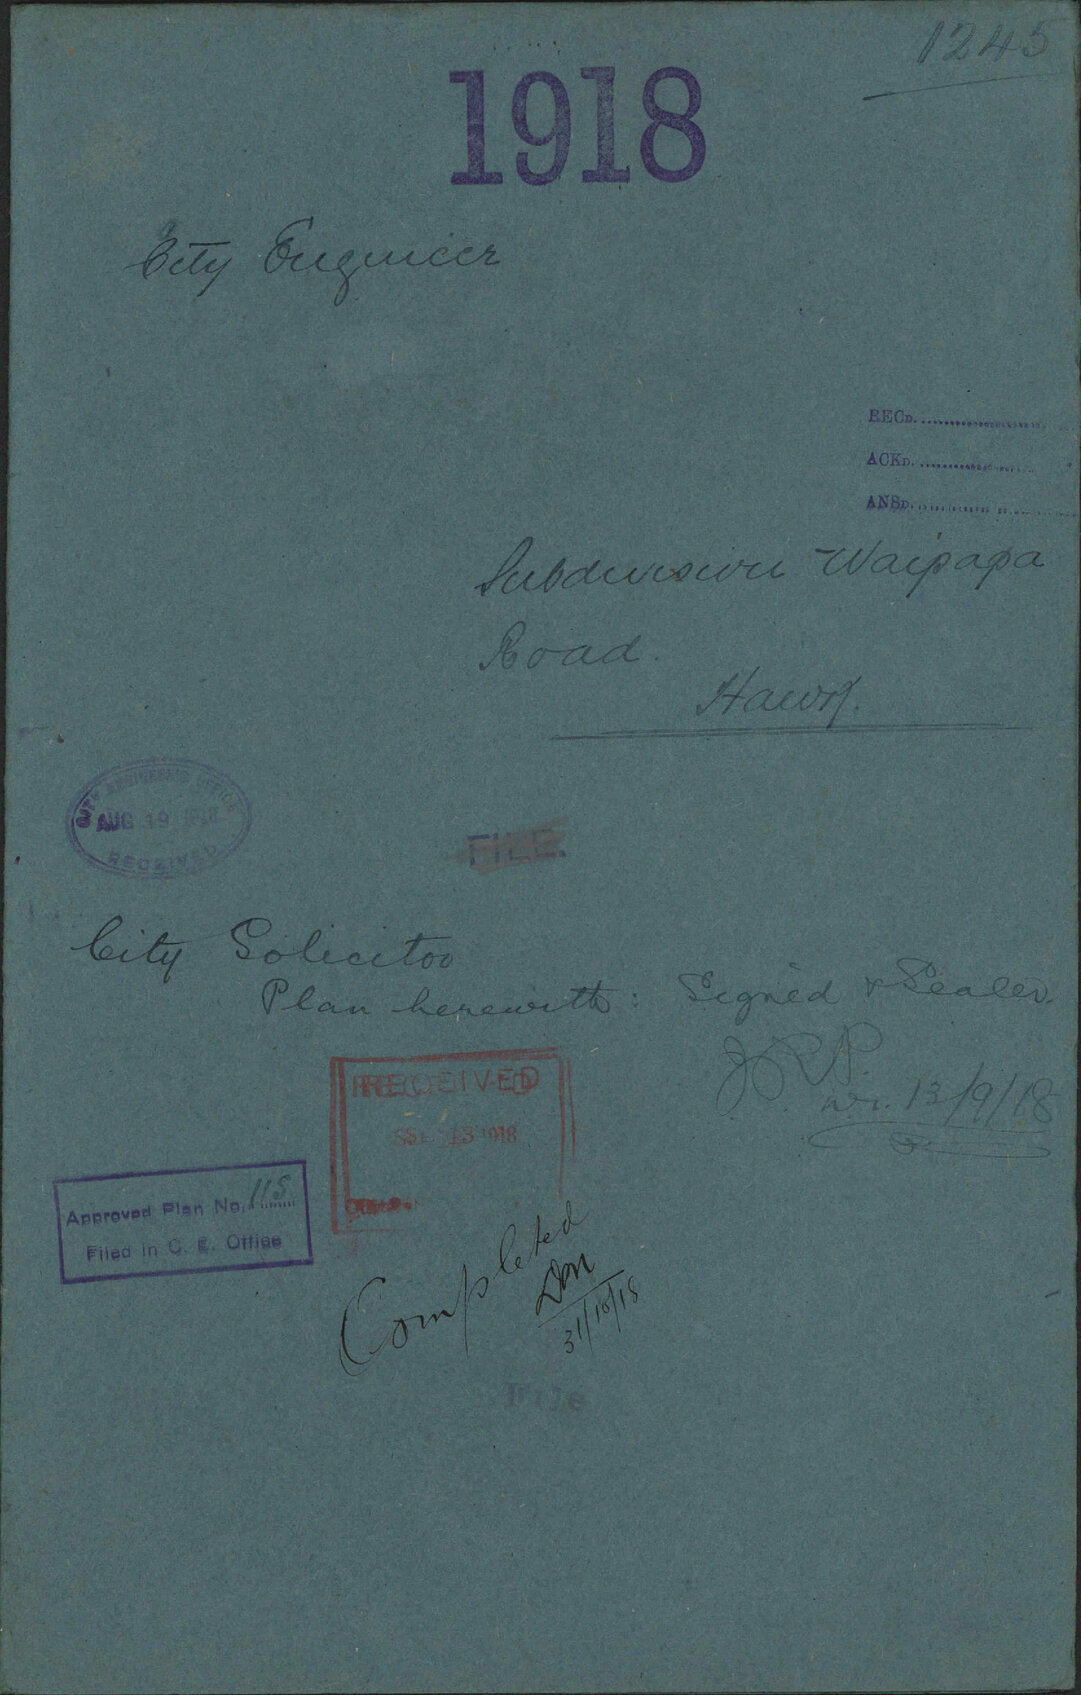 1245
1918
City Engineer
RECD.
ACKD.
ANSD.
Subdivision Waipapa
Road.
CITY ENGINEER'S OFFICE
AUG 19 1918
RECEIVED
FILE.
City Solicitor
Plan herewith: Signed & Sealed.
JRP.
13/9/18
RECEIVED
SEP 13 1918
Approved Plan No. 118
Filed in C. E. Office
Completed
31/10/18
File